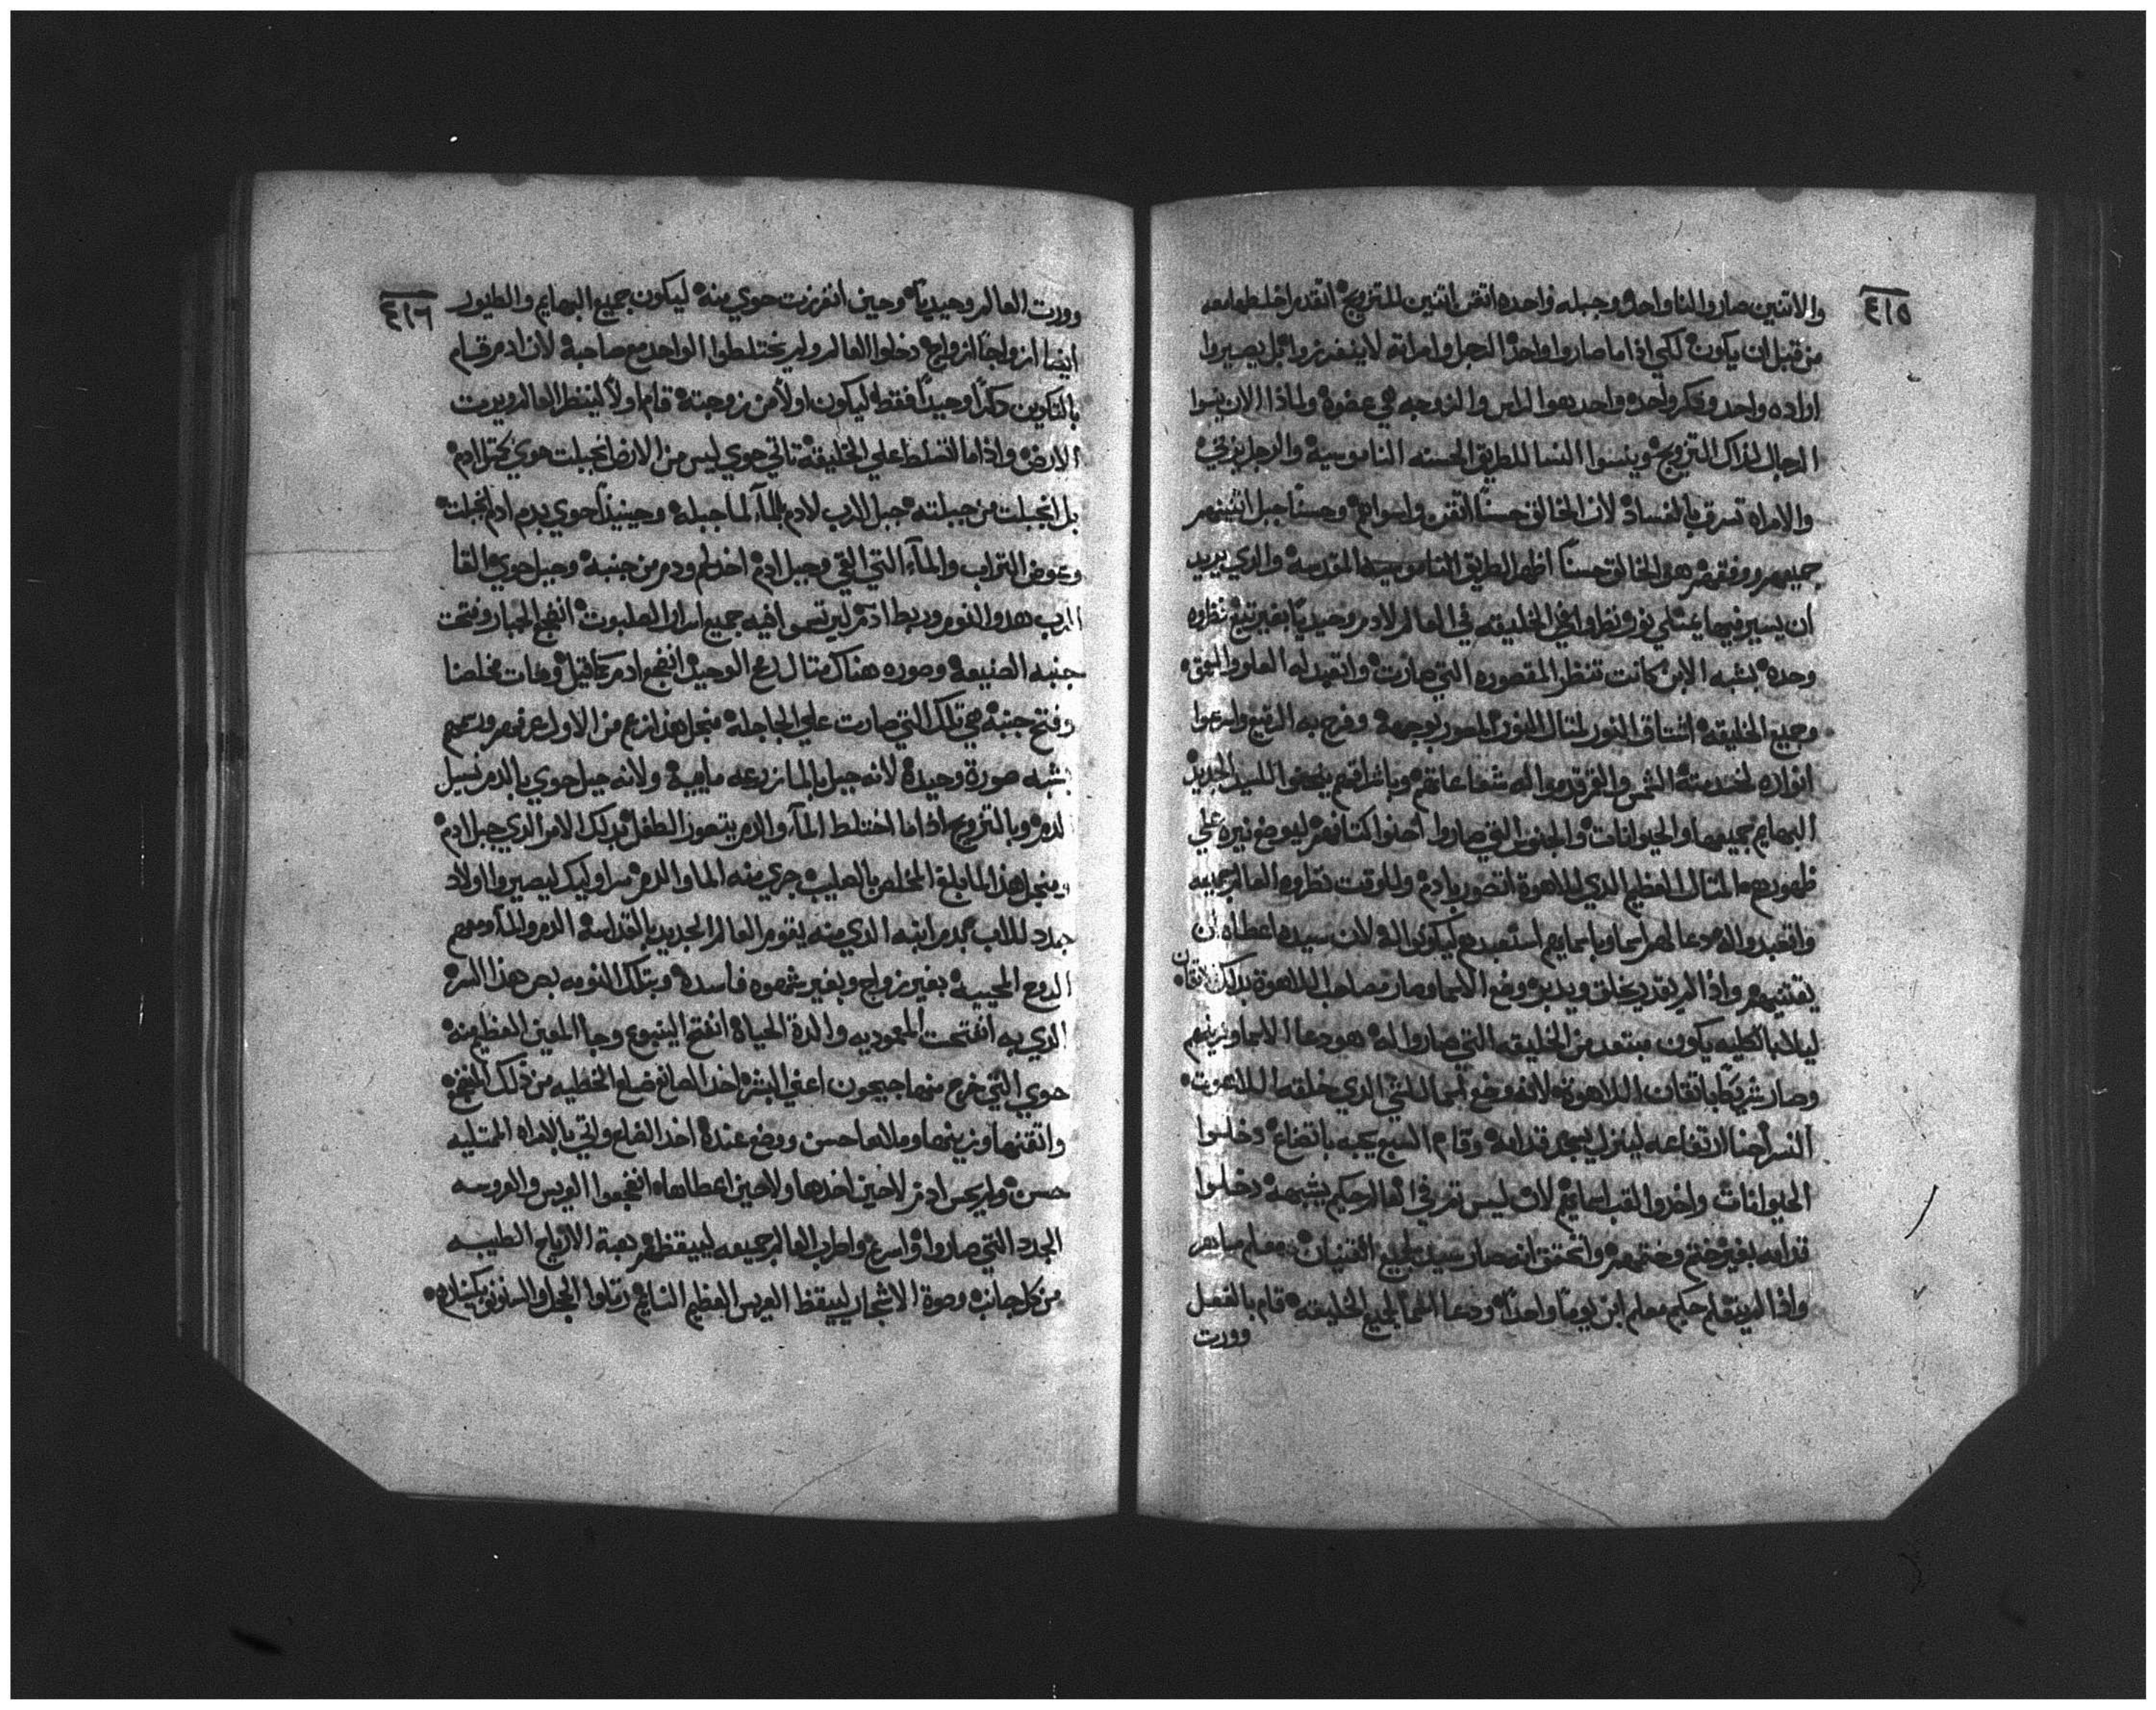 ٤١٥
والاتنين صاروا لنا واحد وجبله واحده اتقن اتنين للتزويج اتقدم اخلطها معه
من قبل ان يكون لكي اذا ما صاروا واحد الرجل وامراته لا ينفرزوا بل يصيروا
اراده واحد وفكر واحده واحد هوا الراس والزوجه هي عضوه ولماذا الان ينسوا
الرجال لذاك التزويج وينسوا النسا للطريق الحسنه الناموسيه والرجل يزني
والامراه تسرق بالفساد لان الخالق حسناً اتقن واسرائع وحسناً جبل اتنينهم
جميعهم ووفقهم هو الخالق حسناً اظهر الطريق الناموسيه المقدسه والذي يريد
ان يسير فيها يمتلي نور ونظروا في الخليقه في العالم لادم وحيدياً بغير تبع نظروه
وحده بشبه الابن كانت تنظر المقصوره التي صارت واتعبد له العلو والعمق
وجميع الخليقه اشتاق النور لمتال النور المصور بوجهه وفرح به الرقيع واسرعوا
انواره لخدمته الشمس والقمر قدموا له شعاعاتهم وباشراقهم للسيد الجديد
البهايم جميعها والحيوانات والجنوس التي صاروا احنوا اكتافهم ليوضع نيره علي
ظهورهم المتال العظيم الذي للاهوة اتصور بادم وللوقت نظروه العالم جميعه
واتعبدوا له ودعا لهم اسما وباسمايهم استعبدهم ليكونوا له لان سيده اعطاه ان
يقتنيهم واذ لم يقدر يخلق ويدبر وضع الاسما وصار صاحب اللاهوة بدلك الاتقان
ليلا بالكليه يكون مبتعد من الخليقه التي صاروا له هو دعا الاسما وزينهم
وصار شريكاً باتقانات اللاهوة لانه وضع اسما للشي الذي خلقه اللاهوت
النسر احنا ارتفاعه لينزل يسجد قدامه وقام السبع يحبه باتضاع دخلوا
الحيوانات واخدوا القب اسمايهم لان ليس تم في العالم حكيم بشبهه دخلوا
قدامه بغير ختم وختمهم واتحقق انه صار سيد لجميع القنيان معلم ماهر
واذ لم يتعلم حكيم معلم ابن يوماً واحداً ودعا اسماً لجميع الخليقه قام بالفعل
وورت
٤١٦
وورت العالم وحيدياً وحين انفرزت حوي منه ليكون جميع البهايم والطيور
ايضا ازواجاً ازواج دخلوا العالم ولم يختلطوا الواحد مع صاحبه لان ادم قام
بالتكوين دكراً وحيداً فقط ليكون اولاً من زوجته قام اولاً لينظر العالم ويرت
الارض واذا ما اتسلط علي الخليقه تاتي حوي ليس من الارض انجبلت حوي كجبل ادم
بل انجبلت من جبلته جبل الرب لادم بالمآء لما جبله وحينيذاً حوي بدم ادم انجبلت
وعوض التراب والمآء التي القي وجبل ادم اخد لحم ودم من جنبه وجبل حوي القا
الرب هدو النوم وربط ادم ليرتسموا فيه جميع اسرار الصلبوت انضجع الجبار وفتحت
جنبه الصنيعه وصوره هناك متال لدبح الوحيد انضجع ادم كقتيل ومات مخلصنا
وفتح جنبه في تلك التي صارت علي الجاجله منجل هذا زمع من الاول عرفهم ورسمهم
بشبه صورة وحيده لانه جبل بالما زرعه مايه ولانه جبل حوي بالدم نسيل
لدم وبالتزويج اذا ما اختلط المآء والدم يتصور الطفل بدلك الامر الدي جبل ادم
ومنجل هذا لما بلغ المخلص بالصليب جري منه الما والدم سراوليك ليصيروا اولاد
جدد للاب بدم ابنه الدي منه يقوم العالم الجديد بالقداسه الدم والمآء ومعهم
الروح المحييه بغير زواج وبغير شهوه فاسده وبتلك النومه بص هذا السر
الدي به انفتحت المعموديه والدة الحياه انفتح الينبوع وجا المعين العظيم منه
حوي التي خرج منها جيحون اعني البشر اخد الصانع ضلع الخطيه من ذلك المنضجع
واتقنها وزينها وملاها حسن ووضع عنده اخد الضلع واتي بالامراه الممتليه
حسن ولم يحس ادم لا حين اخدها ولا حين اعطاها انضجعوا العريس والعروسه
الجدد التي صاروا واسرع واطرب العالم جميعه ليقظهم هبة الارياح الطيبه
من كل جانب وصوة الاشجار ليستيقظ العريس العظيم النايم رتلوا الحجل والسنونو بكنارهم